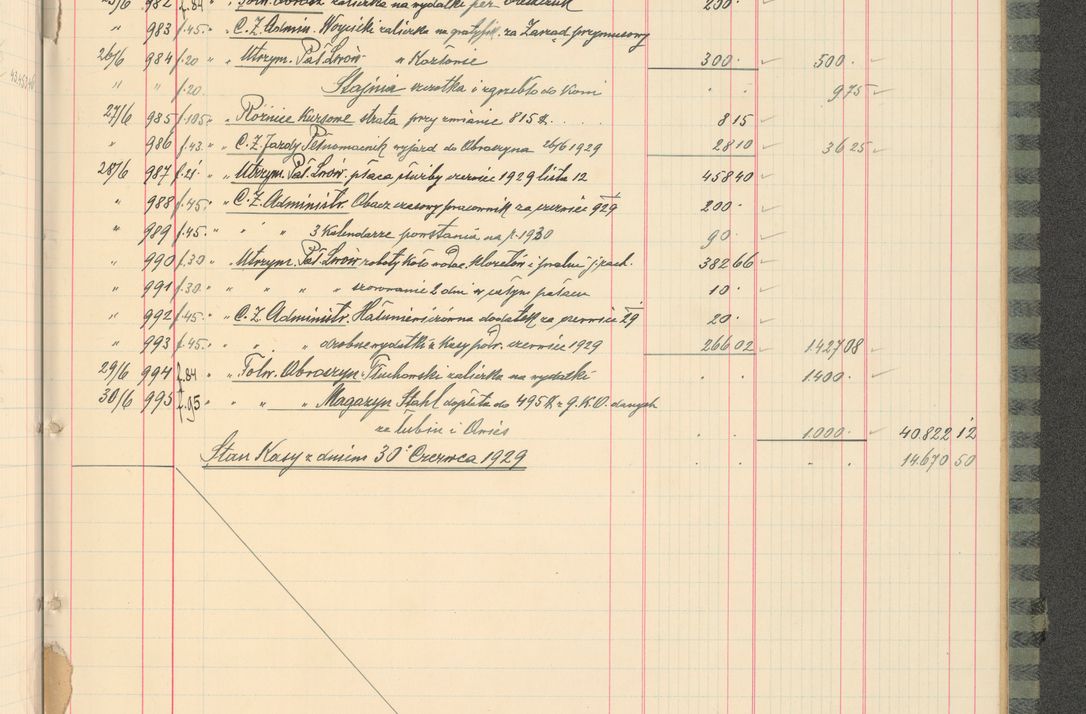 25/6 982 f.84 " " Folw. Obroszyn zaliczka na wydatki per 200·
" 983 f.45· " " C.Z. Admin. Woycicki zaliczka na za Zarząd przymusowy
26/6 984 f.20 " " Utrzym. Pał. Lwów " 300· 500·
" " f.20 Stajnia szczotka i zgrzebło do koni 9 75
27/6 985 f.105 " " Różnice Kursowe strata przy zmianie 815 8 15
" 986 f.43· " " C.Z. Jazdy Pełnomocnik wyjazd do Obroszyna 26/6 1929 28 10 36 25
28/6 987 f.21· " " Utrzym. Pał. Lwów. płaca służby czerwiec 1929 lista 12 458 40
" 988 f.45· " " C.Z. Administr. Obacz czasowy pracownik za czerwiec 929 200·
" 989 f.45· " " " 3 Kalendarze powstania na r. 1930 90·
" 990 f.30 " Utrzym. Pał. Lwów roboty koło wodoc. klozetów i pralni j. rach. 382 66
" 991 f.30 " " " " 2 dni w całym pałacu 10·
" 992 f.45· " " C.Z. Administr. dodatek za czerwiec 29 20·
" 993 f.45· " " " drobne wydatki z Kasy podr. czerwiec 1929 266 02 1.427 08
29/6 994 f.84 " " Folw. Obroszyn Tłuchowski zaliczka na wydatki 1.400·
30/6 995 f.95 " " " Magazyn Stahl dopłata do 495 K z danych
za łubin i Owies 1.000· 40.822 12
Stan Kasy z dniem 30° Czerwca 1929 14.670 50